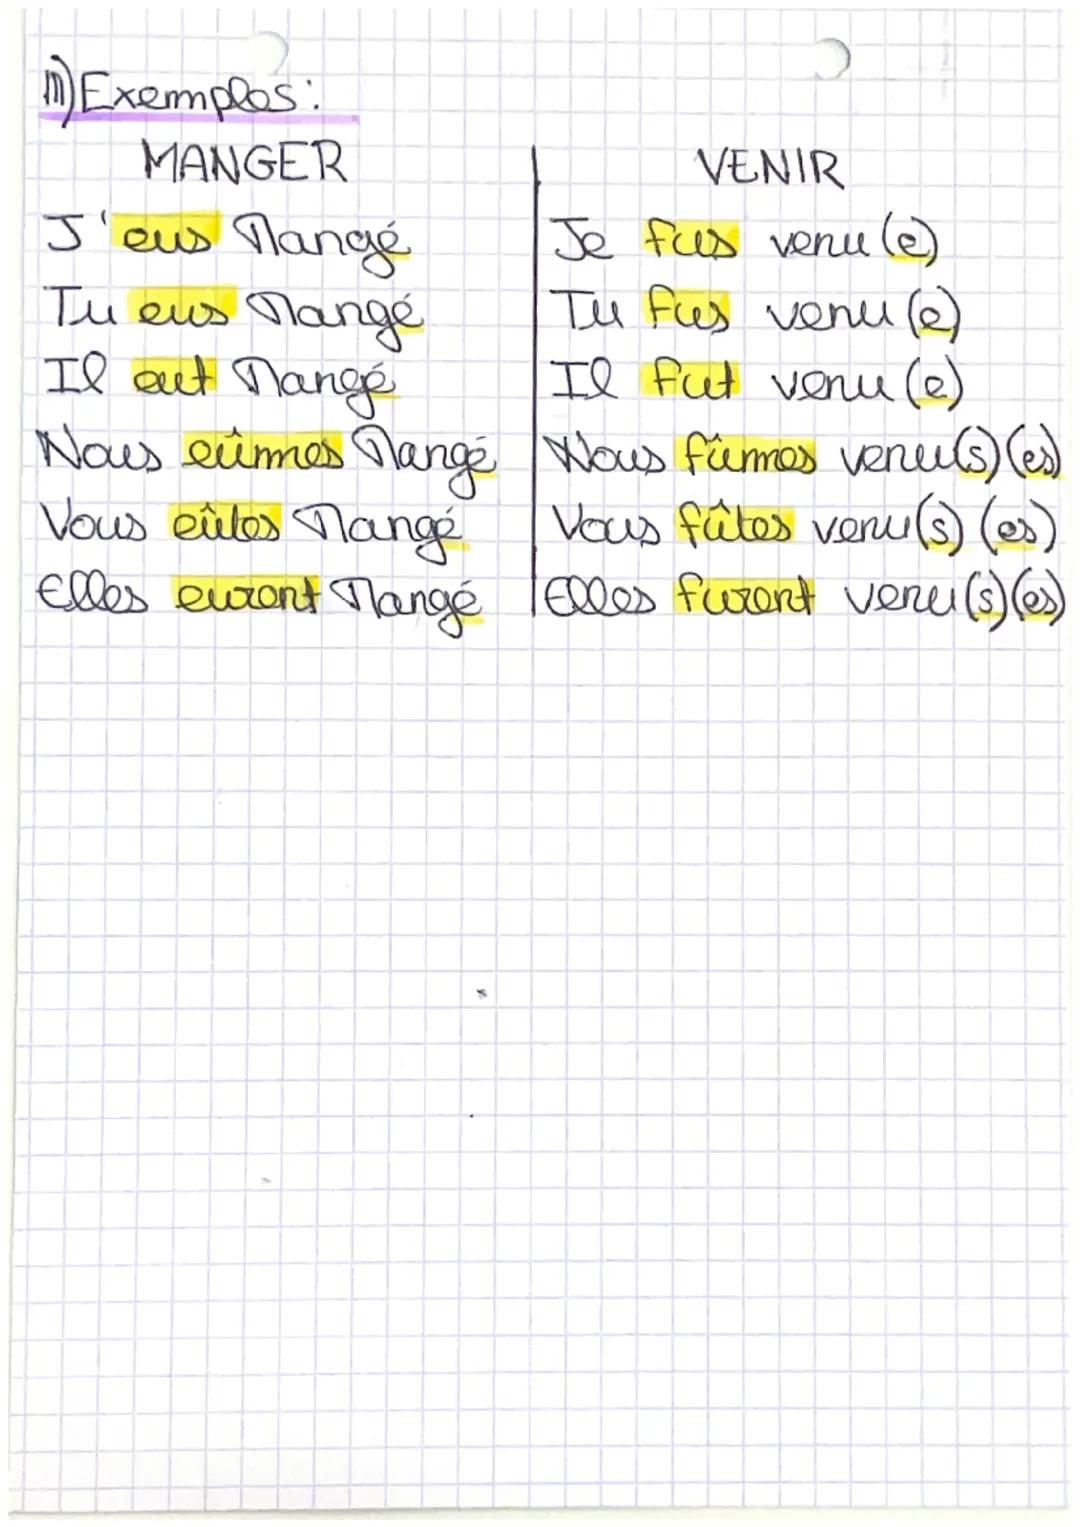 III) Exemples:
MANGER
J'eus Mangé
Tu eus Mangé
Il eut Mangé
Nous eûmes Mangé
Vous eûtes Mangé
Elles eurent Mangé
VENIR
Je fus venu (e)
Tu fus venu (e)
Il fut venu (e)
Nous fûmes venu(s) (es)
Vous fûtes venu(s) (es)
Elles furent venu(s)(es)